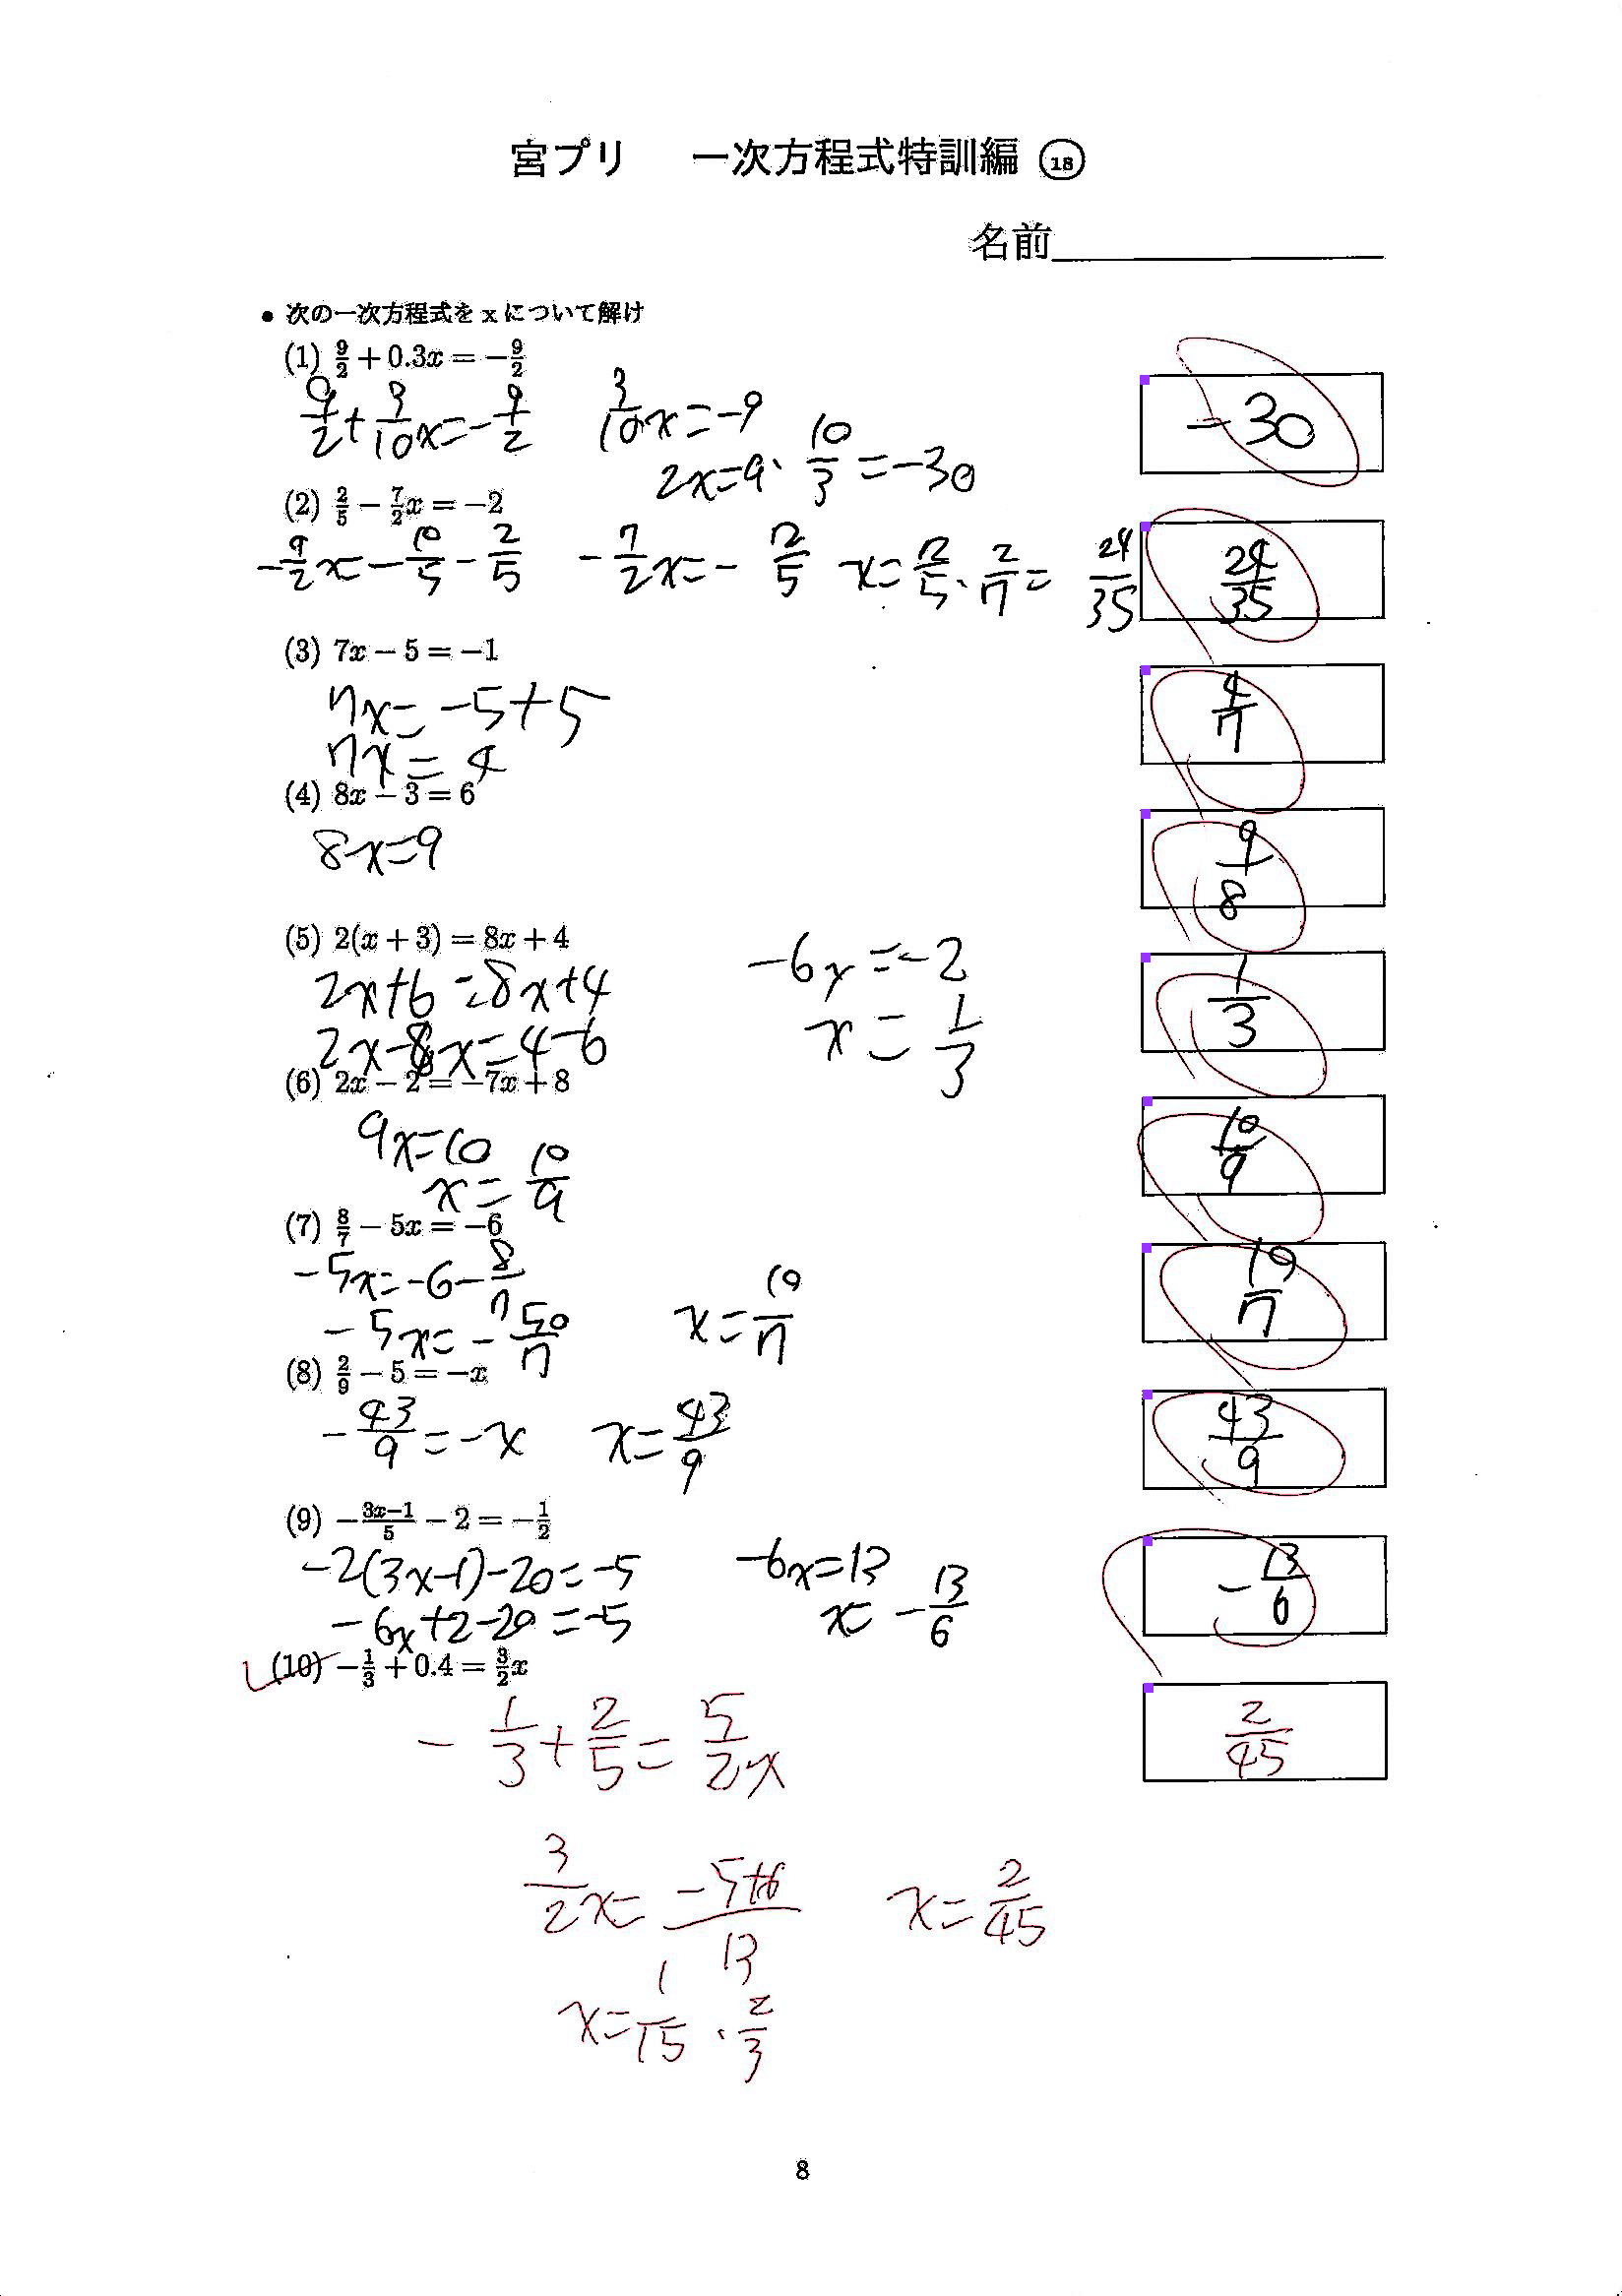 宮プリ 一次方程式特訓編 ⑱
名前
● 次の一次方程式を x について解け
(1) 9/2 + 0.3x = −9/2
9/2 + 3/10 x = −9/2
3/10 x = −9
2x=9・10/3 = −30
−30
(2) 2/5 − 7/2 x = −2
−9/2 x = −10/5 − 2/5
−7/2 x = −12/5
x = 12/5・2/7 = 24/35
24/35
(3) 7x − 5 = −1
7x = −5+5
7x = 4
4/7
(4) 8x − 3 = 6
8x=9
9/8
(5) 2(x + 3) = 8x + 4
2x+6 = 8x+4
2x−8x=4−6
−6x = −2
x = 1/3
1/3
(6) 2x − 2 = −7x + 8
9x=10
x = 10/9
10/9
(7) 8/7 − 5x = −6
−5x = −6 − 8/7
−5x = −50/7
x = 10/7
10/7
(8) 2/9 − 5 = −x
−43/9 = −x
x = 43/9
43/9
(9) −(3x−1)/5 − 2 = −1/2
−2(3x−1)−20=−5
−6x+2−20=−5
−6x=13
x= −13/6
−13/6
(10) −1/3 + 0.4 = 3/2 x
−1/3 + 2/5 = 5/2 x
3/2 x = (−5+6)/13
x = 1/15・2/3
x = 2/45
2/45
8